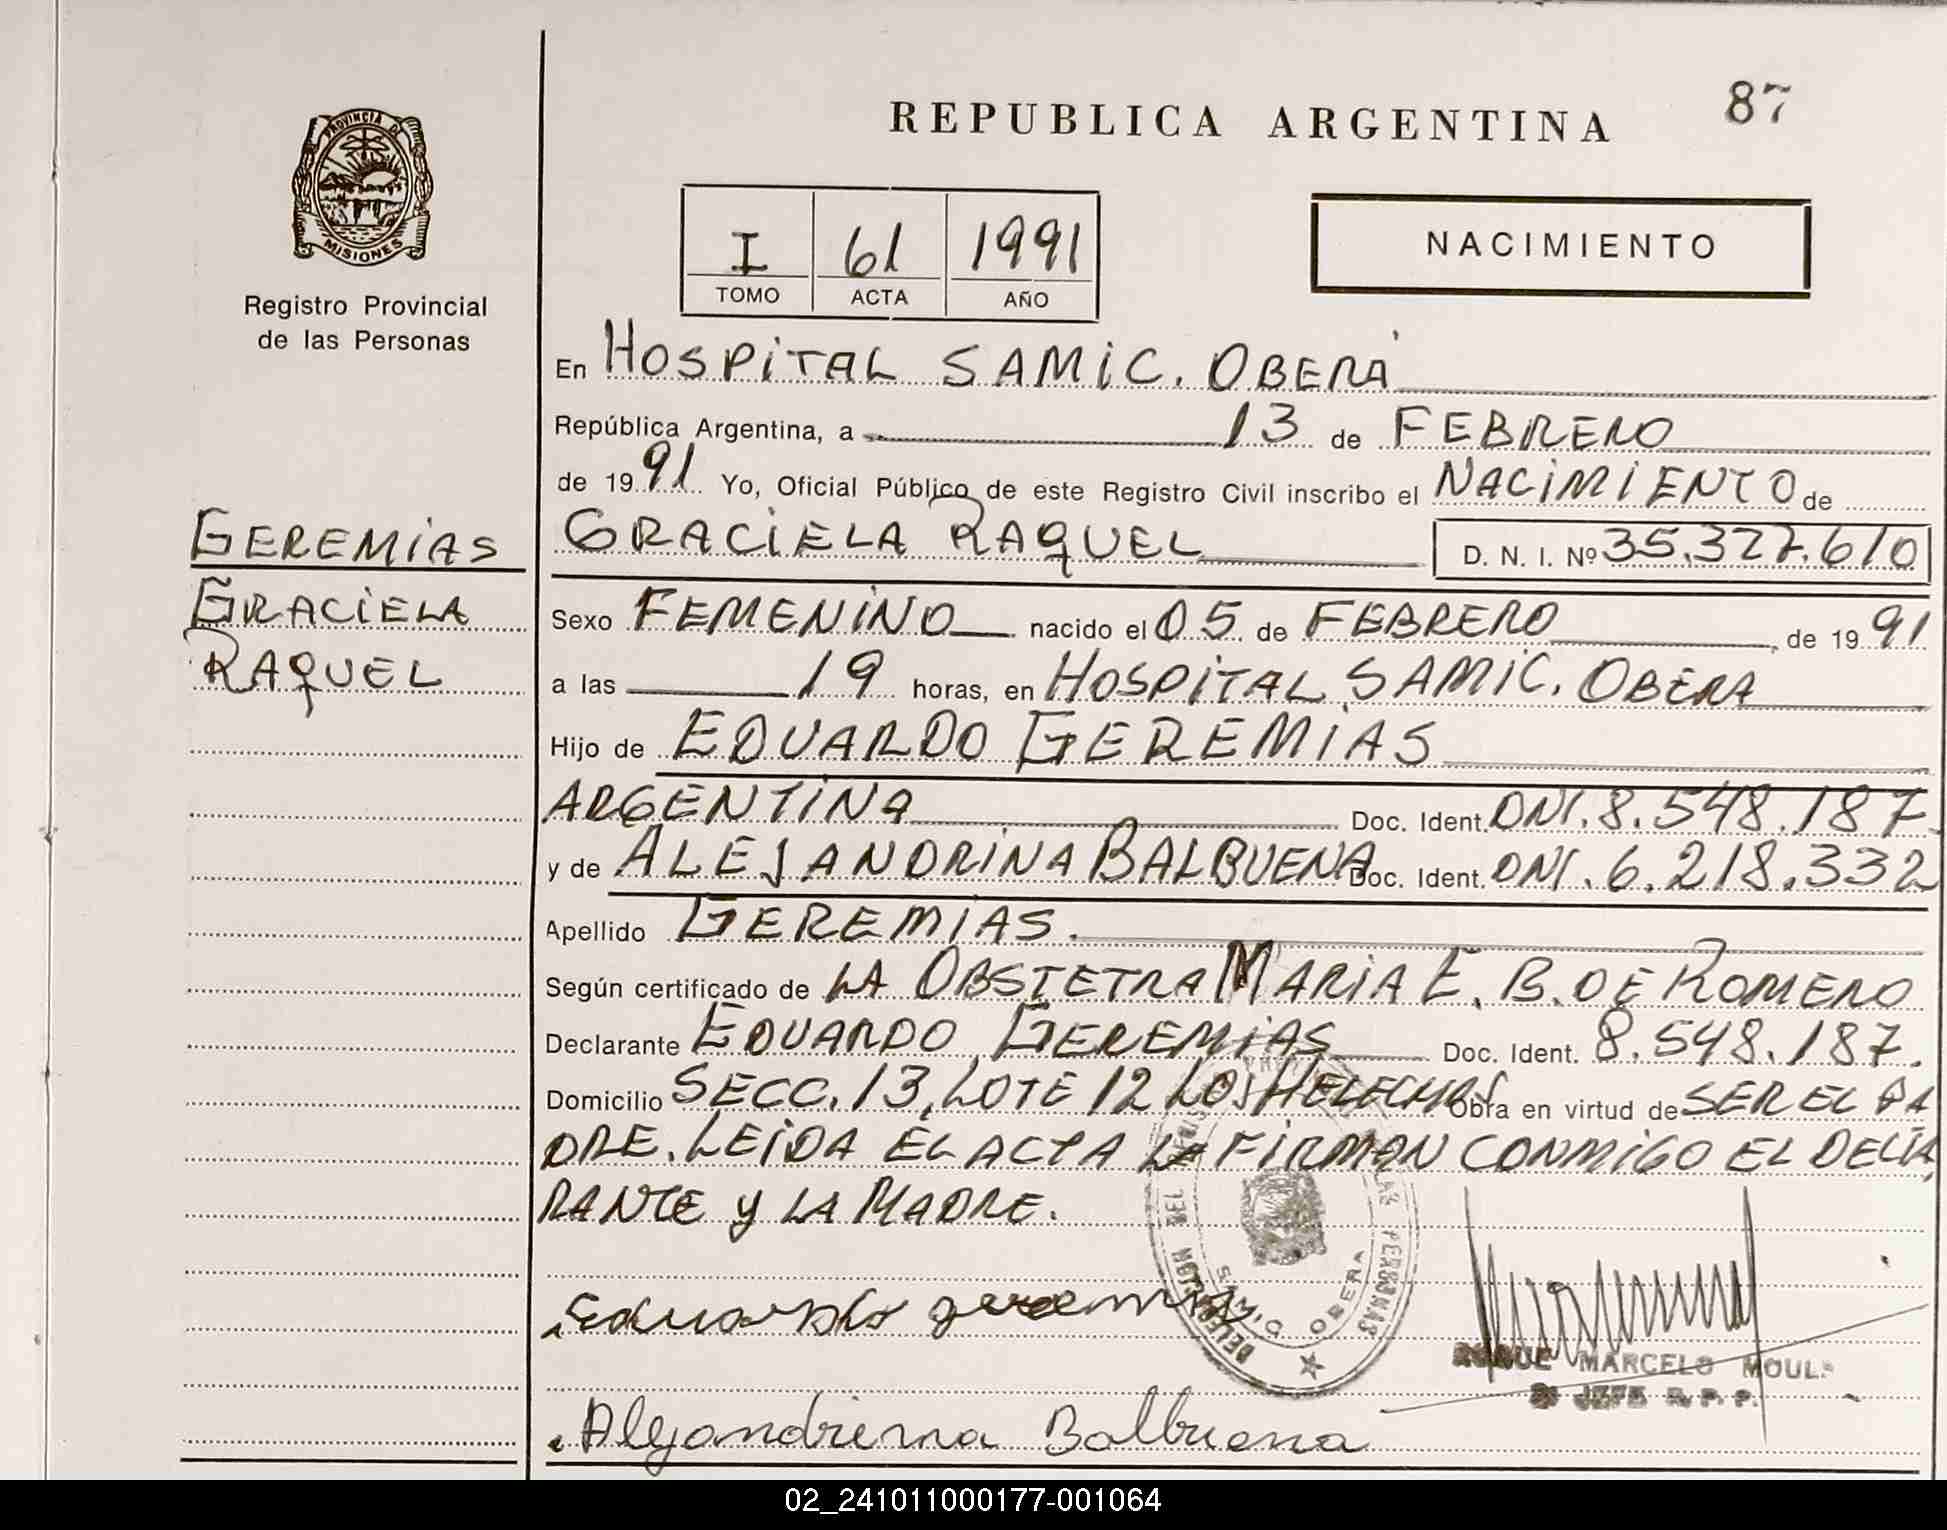 87
REPUBLICA ARGENTINA
PROVINCIA DE
MISIONES
Registro Provincial
de las Personas
I 61 1991
TOMO ACTA AÑO
NACIMIENTO
En HOSPITAL SAMIC. OBERÁ
República Argentina, a 13 de FEBRERO
de 1991 Yo, Oficial Público de este Registro Civil inscribo el NACIMIENTO de
GRACIELA RAQUEL D. N. I. Nº 35.327.610
GEREMIAS
GRACIELA
RAQUEL
Sexo FEMENINO nacido el 05 de FEBRERO, de 1991
a las 19 horas, en HOSPITAL SAMIC. OBERA
Hijo de EDUARDO GEREMIAS
ARGENTINA Doc. Ident. DNI. 8.548.187.
y de ALEJANDRINA BALBUENA Doc. Ident. DNI. 6.218.332
Apellido GEREMIAS.
Según certificado de LA OBSTETRA MARIA E. B. DE ROMERO
Declarante EDUARDO GEREMIAS Doc. Ident. 8.548.187.
Domicilio SECC. 13, LOTE 12 LOS HELECHOS Obra en virtud de SER EL PA
DRE. LEIDA EL ACTA LA FIRMAN CONMIGO EL DECLA
RANTE Y LA MADRE.
Eduardo geremias
DELEGACION DEL REGISTRO LAS PERSONAS
OBERA
ROQUE MARCELO MOUL
JEFE R. P. P.
Alejandrina Balbuena
02_241011000177-001064